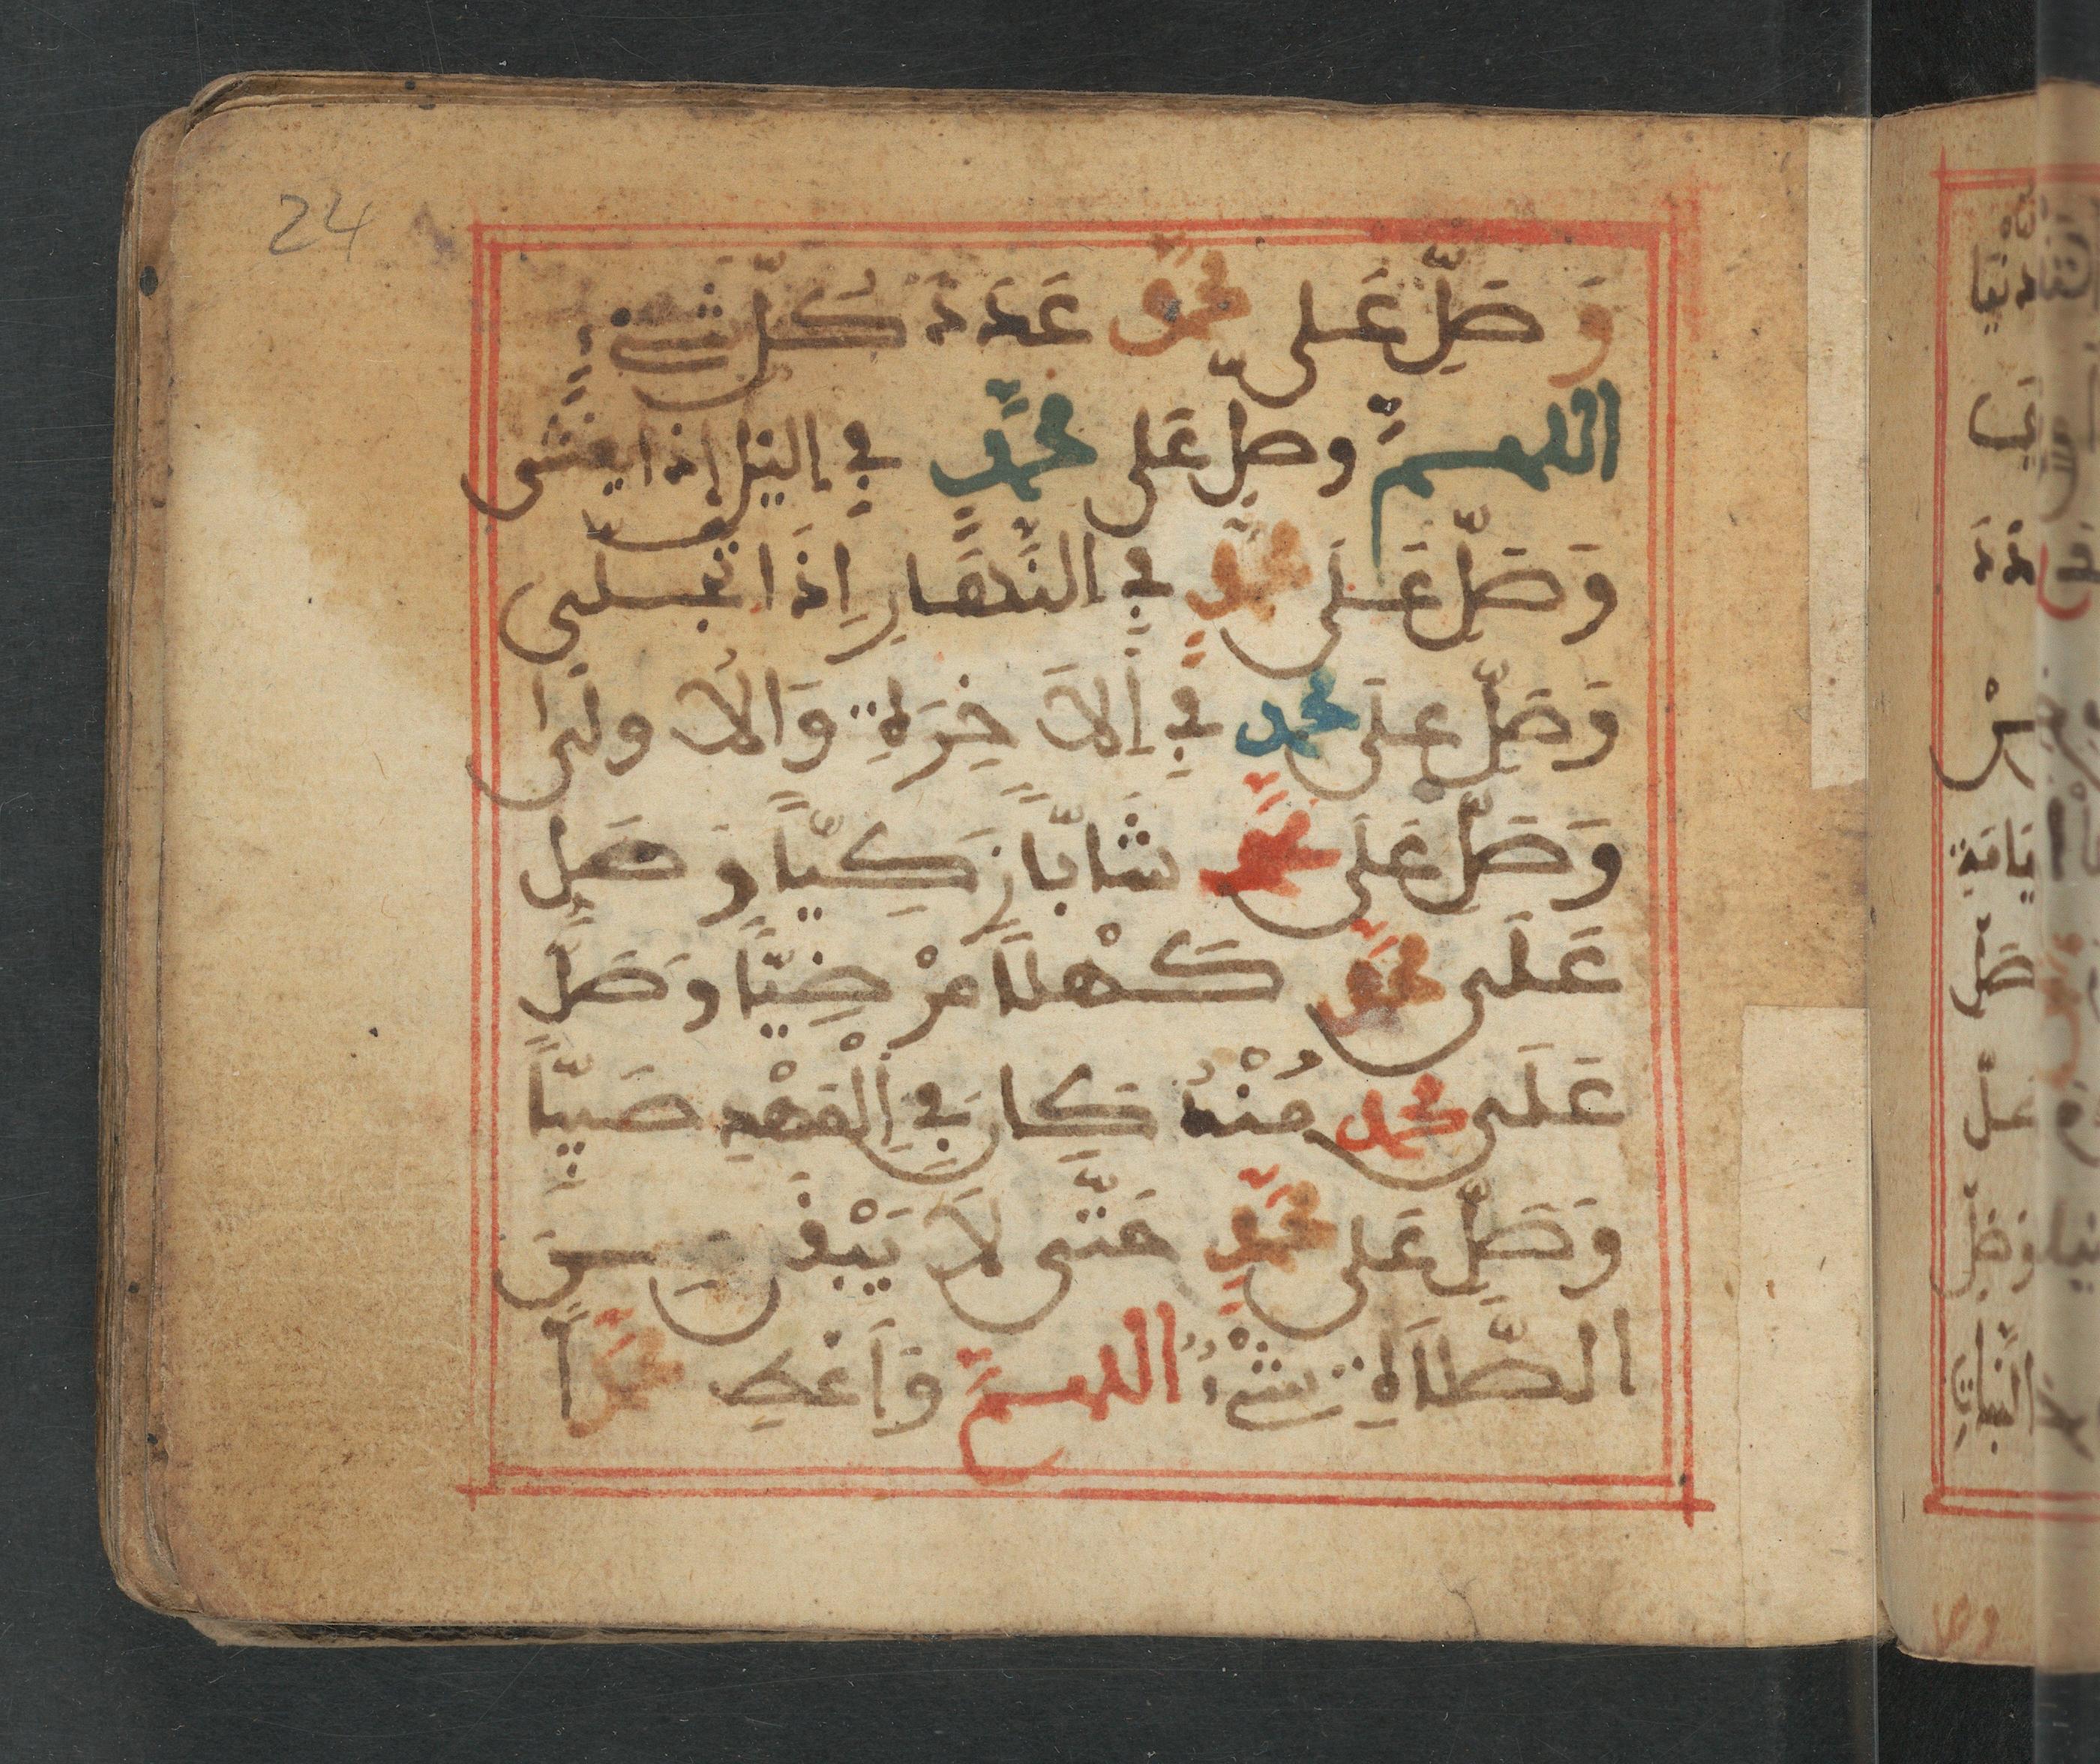 24
وَصَلِّ عَلى مُحَمَّدٍ عَدَدَ كُلِّ شَيْءٍ
اللهمَّ وصل عَلى مُحَمَّدٍ فِي اليل إذا يغشى
وَصَلِّ عَلَى مُحَمَّدٍ في النَّهَارِ إِذَا تجلى
وَصَلِّ عَلَى محمد فِي اَلاَخِرَةِ وَالاُولَى
وَصَلِّ عَلَى مُحَمَّدٍ شَابّاً زَكِيّاً وَصَلِّ
عَلَى مُحَمَّدٍ كَهْلاً مَرْضِيّاً وَصَلِّ
عَلَى محمد مُنْذُ كَانَ فِي اِلْمَهْدِ صَبِيّاً
وَصَلِّ عَلى مُحَمَّدٍ حَتَّى لاَ يَبْقَى مِنَ
الصَّلاَةِ شَيْءٌ اللهمَّ وَاَعْطِ مُحَمَّداً